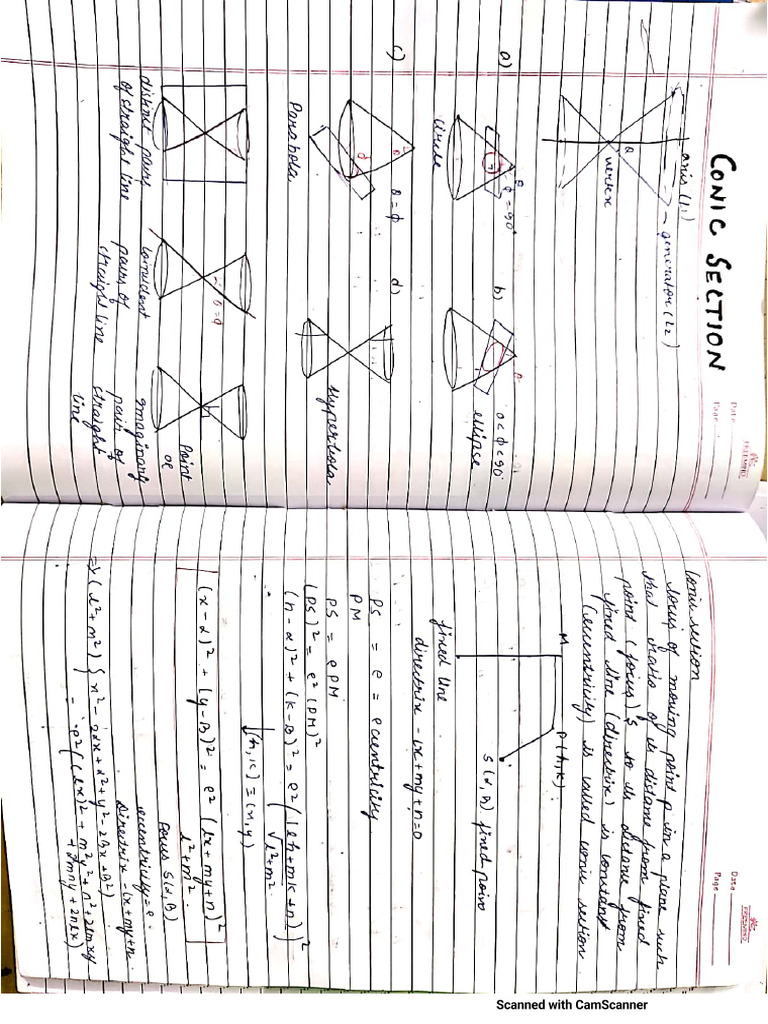 CONIC SECTION
Date
Page
axis (L1)
generator (L2)
vertex
a)
ϕ = 90°
circle
b)
0 < ϕ < 90°
ellipse
c)
θ
θ = ϕ
Parabola
d)
Hyperbola
distinct pairs
of straight line
θ = ϕ
coincident
pairs of
straight line
Point
or
Imaginary
pair of
straight
line
Date
Page
Conic section
locus of moving point P in a plane such
that ratio of its distance from fixed
point (focus) S to its distance from
fixed line (directrix) is constant
(eccentricity) is called conic section.
M
P(h,k)
S(α,β) fixed point
fixed line
directrix - lx+my+n=0
PS = e = eccentricity
PM
PS = e PM
(PS)² = e² (PM)²
(h-α)² + (k-β)² = e² (lh+mk+n)²
√l²+m²
(h,k) ≡ (x,y)
(x-α)² + (y-β)² = e² (lx+my+n)²
l²+m²
focus S(α,β)
eccentricity = e.
Directrix - lx+my+n.
=> (l²+m²) { x² - 2αx + α² + y² - 2βx + β²)
- e² ( (lx)² + m²y² + n² + 2lmxy
+ 2mny + 2nlx)
Scanned with CamScanner